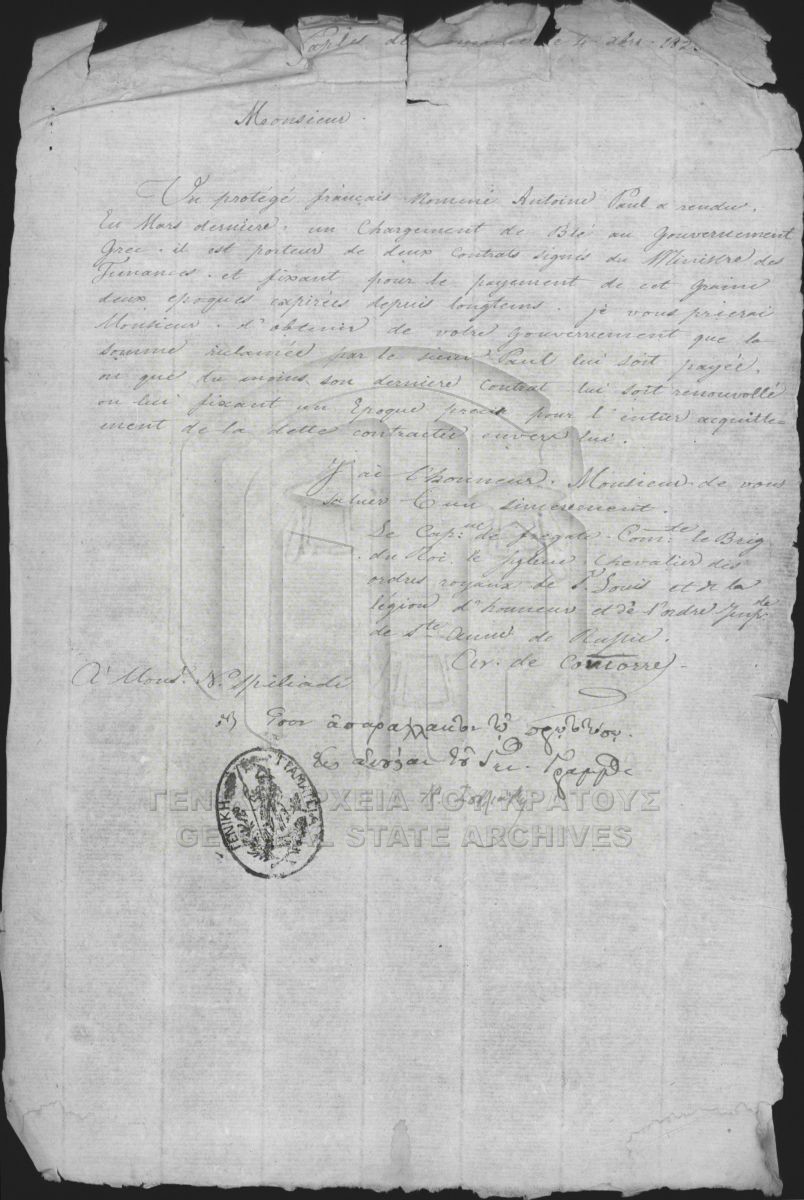 de le 4 182
Monsieur.
Un protégé français nommé Antoine Paul a rendu.
En Mars dernière. un Chargement de Blé au Gouvernement
Grec. il est porteur de deux Contrats signés du Ministre des
Finances. et fixant pour le payement de cet graine
deux epoques expirées depuis longtems. je vous prierai
Monsieur. d'obtenir de votre gouvernement que la
somme réclamée par le sieur Paul lui soit payée.
ou que du moins son dernière Contrat lui soit renouvellé
en lui fixant un Epoque precis pour l'entier acquitte=
ment de la dette contractée envers lui.
J'ai l'honneur. Monsieur de vous
saluer sincèrement.
Le Cap:ne de frégate. Com:te le Brig
du Roi. le Chevalier des
ordres royaux de St Louis et de la
légion d'honneur et de l'ordre Imp
de Ste Anne de Russie.
de
A Mons. N. Spiliadi
Ἴσον ἀπαράλλακτον τῷ πρωτοτύπῳ.
Γεν. Γραμμ
ΓΕΝΙΚΗ ΓΡΑΜΜΑΤΕΙΑ
ΓΕΝΙΚΑ ΑΡΧΕΙΑ ΤΟΥ ΚΡΑΤΟΥΣ
GENERAL STATE ARCHIVES